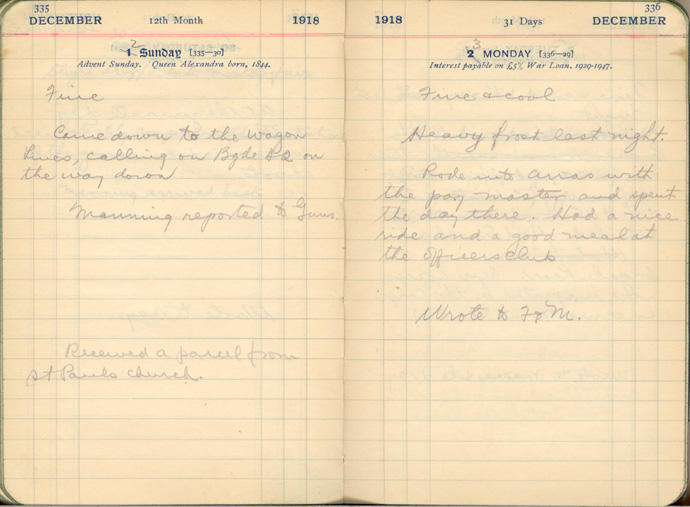 335
DECEMBER 12th Month 1918
2
1 Sunday [335—30]
Advent Sunday. Queen Alexandra born, 1844.
Fine
Came down to the Wagon
Lines, calling on Bgde HQ on
the way down
Manning reported to Guns.
Received a parcel from
St Pauls church.
336
1918 31 Days DECEMBER
3
2 MONDAY [336—29]
Interest payable on £5% War Loan, 1929-1947.
Fine & cool
Heavy frost last night.
Rode into Arras with
the pay master and spent
the day there. Had a nice
ride and a good meal at
the Officers club
Wrote to F & M.